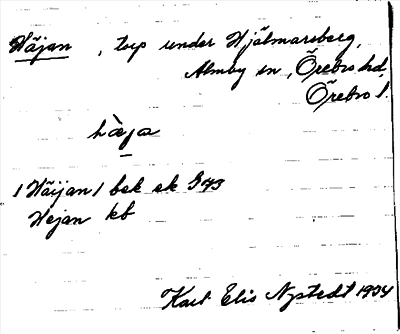 Häjan, torp under Hjälmarsberg,
Almby sn, Örebro hd,
Örebro l.
hä̀ja
/Häijan/ bek ek 543
Hejan kb
Karl Elis Nystedt 1934